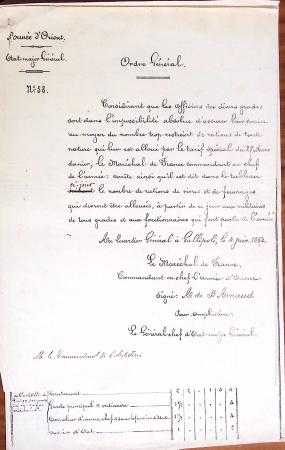 Armée d'Orient.
Etat-major Général.
N° 58.
Ordre Général.
Considérant que les Officiers des divers grades
sont dans l'impossibilité absolue d'assurer leur service
au moyen du nombre trop restreint de rations de toute
nature qui leur est alloué par le tarif spécial du 27 mars
dernier, le Maréchal de France commandant en chef
de l'armée arrête ainsi qu'il est dit dans le tableau
ci-joint
le nombre de rations de vivres et de fourrages
qui devront être allouées, à partir de ce jour aux militaires
de tous grades et aux fonctionnaires qui font partie de l'armée
Au Quartier Général à Gallipoli, le juin
Le Maréchal de France,
Commandant en chef l'Armée d'Orient
Signé: Mal de St Arnaud
Pour ampliation:
Le Général chef d'Etat-major Général,
M. le Commandant de l'Artillerie
Garde principal & ordinaire
Ouvrier d'Etat